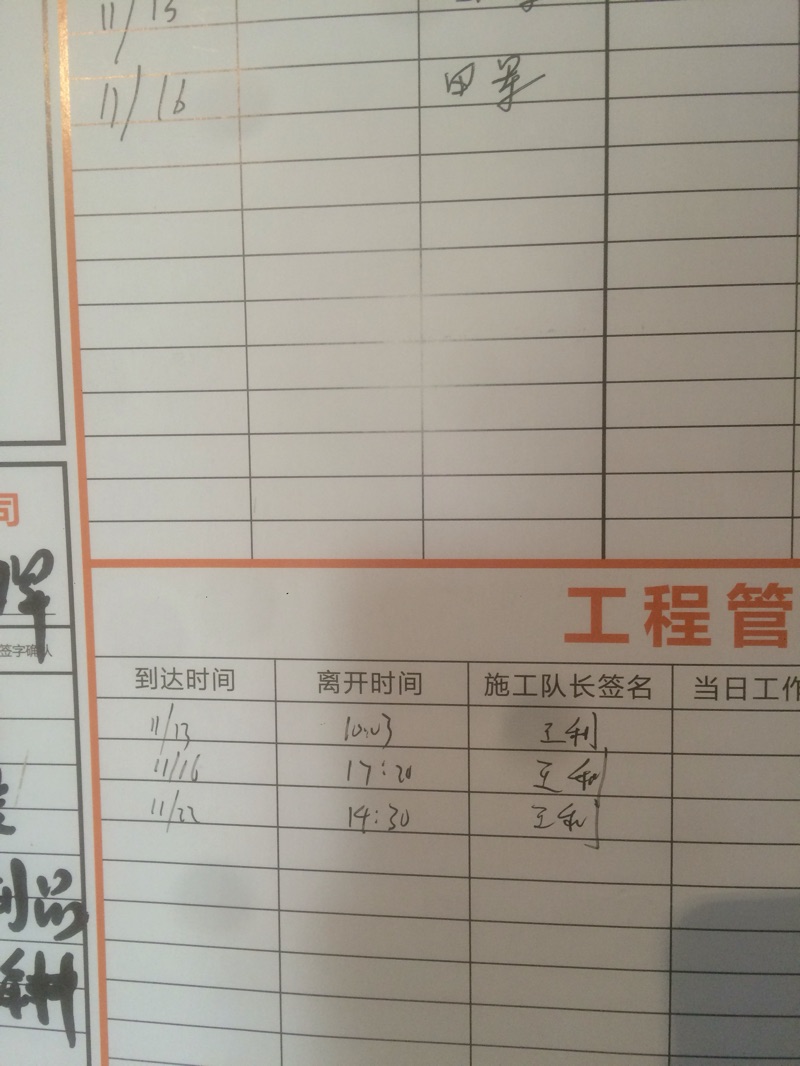 11/13
11/16 田军
司
签字确认
工程管
到达时间 离开时间 施工队长签名 当日工作
11/13 10:03 王利
11/16 17:20 王利
11/22 14:30 王利